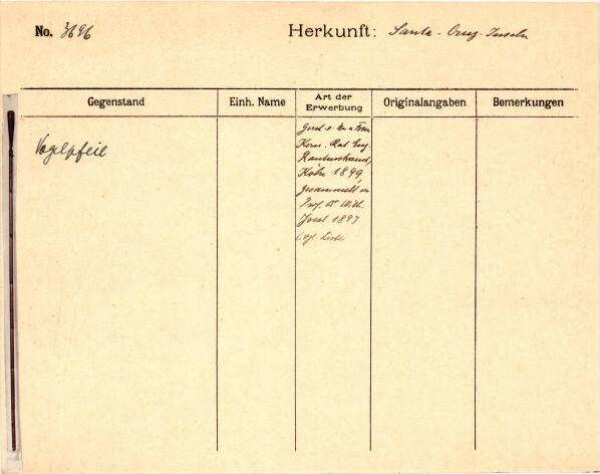 No. 3696
Herkunft: Santa-Cruz-Inseln
Gegenstand
Einh. Name
Art der
Erwerbung
Originalangaben
Bemerkungen
Vogelpfeil
Kom. Rat Eug.
Rautenstrauch,
Köln 1899,
gesammelt v.
Prof. Dr. Wilh.
Joest 1897
vgl. Liste